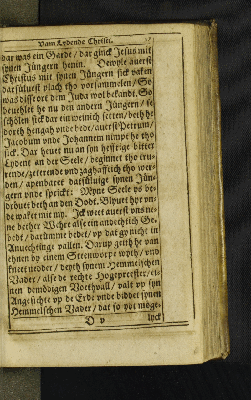 Vam Lydende Christi.
dar was ein Garde / dar ginck Jesus mit
synen Jüngern henin. Dewyle auerst
Christus mit synen Jüngern sick vaken
darsüluest plach tho vorsammelen / So
was disse ort dem Juda wol bekandt. So
beuehlet he nu den andern Jüngern / se
schölen sick dar ein weinich setten / beth he
dorth hengah vnde bede / auerst Petrum,
Jacobum vnde Johannem nimpt he tho
sick. Dar heuet nu an syn hefftige bitter
Lydent an der Seele / beginnet tho tru-
rende / zitterende vnd zaghafftich tho wer-
den / apenbaret datsüluige synen Jün-
gern vnde sprickt: Myne Seele ys be-
dröuet beth an den Dodt. Blyuet hyr vn-
de waket mit my. Ick weet auerst vns ne-
ne bether Wehre alse ein andechtich Ge-
bedt / darümme bedet / vp dat gy nicht in
Anuechtinge vallen. Darup geith he van
ehnen by einem Steenworpe wyth / vnd
kneet nedder / deyth synem Hemmelschen
Vader / alse de rechte Hogeprester / ei-
nen demödigen Vothvall / valt vp syn
Angesichte vp de Erde vnde biddet synen
Hemmelschen Vader / dat so ydt möge-
D v lyck